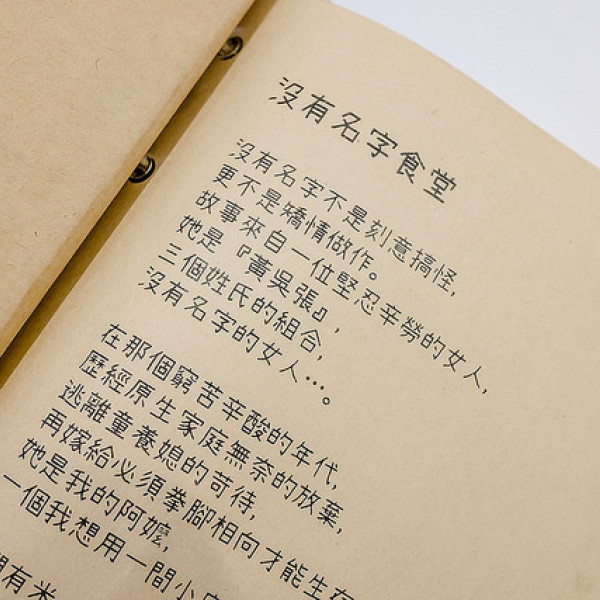 沒有名字食堂
沒有名字不是刻意搞怪,
更不是矯情做作。
故事來自一位堅忍辛勞的女人,
她是『黃吳張』,
三個姓氏的組合,
沒有名字的女人…。
在那個窮苦辛酸的年代,
歷經原生家庭無奈的放棄,
逃離童養媳的苛待,
再嫁給必須拳腳相向才能生存
她是我的阿嬤,
一個我想用一間小
有米